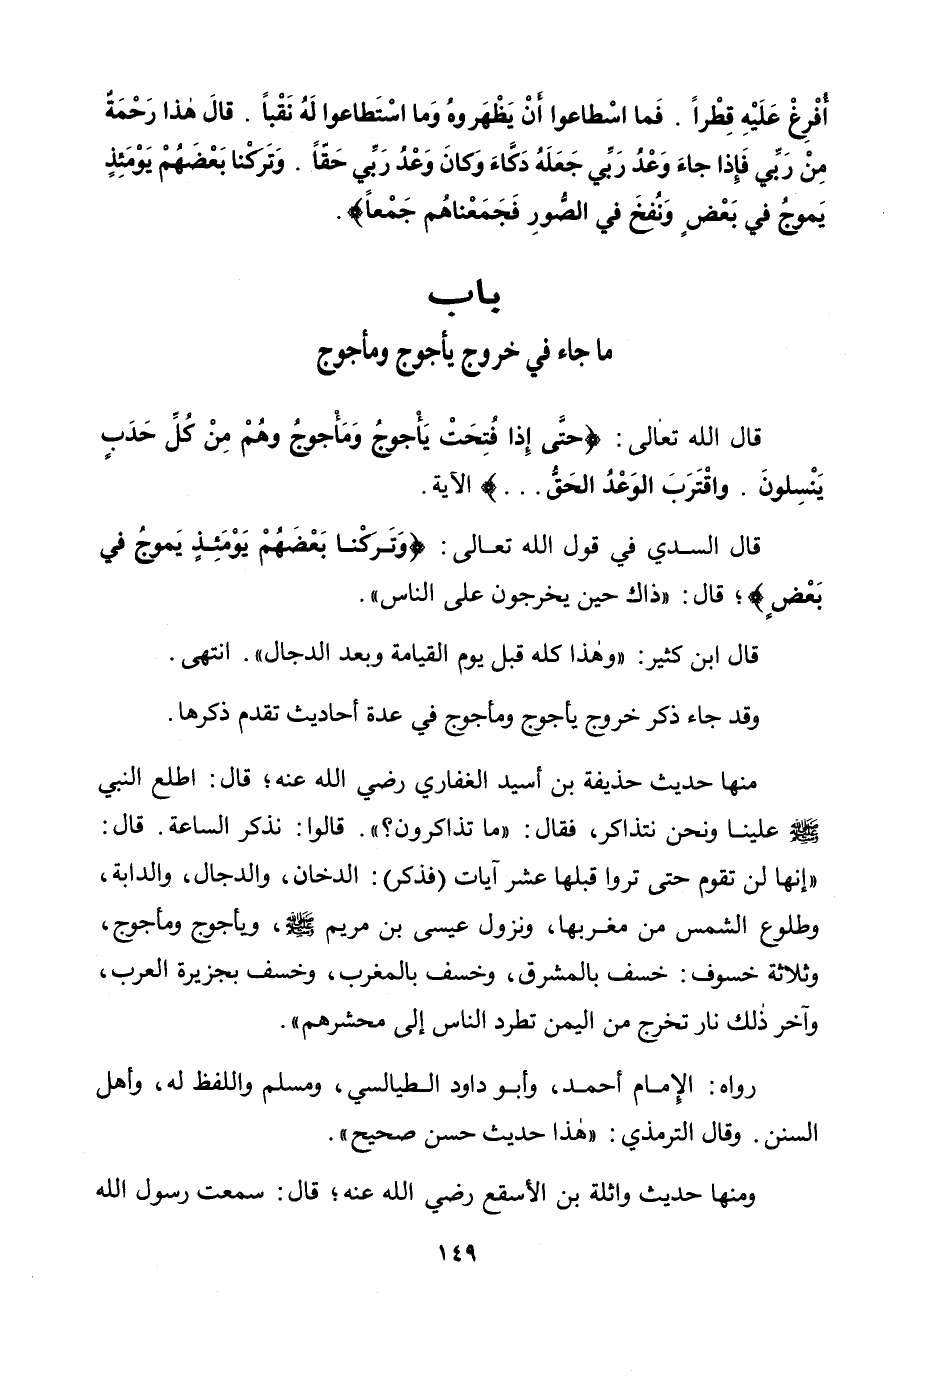 أُفْرِغْ عَلَيْهِ قِطْراً . فَما اسْطاعوا أَنْ يَظْهَروهُ وَما اسْتَطاعوا لَهُ نَقْباً . قالَ هٰذا رَحْمَةٌ
مِنْ رَبِّي فَإِذا جاءَ وَعْدُ رَبِّي جَعَلَهُ دَكَّاءَ وَكانَ وَعْدُ رَبِّي حَقّاً . وَتَرَكْنا بَعْضَهُمْ يَوْمَئِذٍ
يَموجُ في بَعْضٍ وَنُفِخَ في الصُّورِ فَجَمَعْناهُم جَمْعاً﴾ .
باب
ما جاء في خروج يأجوج ومأجوج
قال الله تعٰالى : ﴿حتَّى إِذا فُتِحَتْ يَأْجوجُ وَمَأْجوجُ وهُمْ مِنْ كُلِّ حَدَبٍ
يَنْسِلونَ . واقْتَرَبَ الوَعْدُ الحَقُّ . . . ﴾ الآية .
قال السدي في قول الله تعالى : ﴿وَتَركْنا بَعْضَهُمْ يَوْمَئِذٍ يَموجُ في
بَعْضٍ﴾ ؛ قال : «ذاك حين يخرجون على الناس» .
قال ابن كثير : «وهٰذا كله قبل يوم القيامة وبعد الدجال» . انتهى .
وقد جاء ذكر خروج يأجوج ومأجوج في عدة أحاديث تقدم ذكرها .
منها حديث حذيفة بن أسيد الغفاري رضي الله عنه ؛ قال : اطلع النبي
ﷺ علينا ونحن نتذاكر، فقال : «ما تذاكرون؟» . قالوا : نذكر الساعة . قال :
«إنها لن تقوم حتى تروا قبلها عشر آيات (فذكر) : الدخان، والدجال، والدابة،
وطلوع الشمس من مغربها، ونزول عيسى بن مريم ﷺ، ويأجوج ومأجوج،
وثلاثة خسوف : خسف بالمشرق، وخسف بالمغرب، وخسف بجزيرة العرب،
وآخر ذٰلك نار تخرج من اليمن تطرد الناس إلى محشرهم» .
رواه : الإِمام أحمد، وأبو داود الطيالسي، ومسلم واللفظ له، وأهل
السنن . وقال الترمذي : «هٰذا حديث حسن صحيح» .
ومنها حديث واثلة بن الأسقع رضي الله عنه ؛ قال : سمعت رسول الله
١٤٩